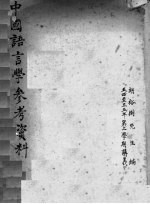 中國語言學參考資料
胡裕樹先生編
五四至五五年第二學期講義